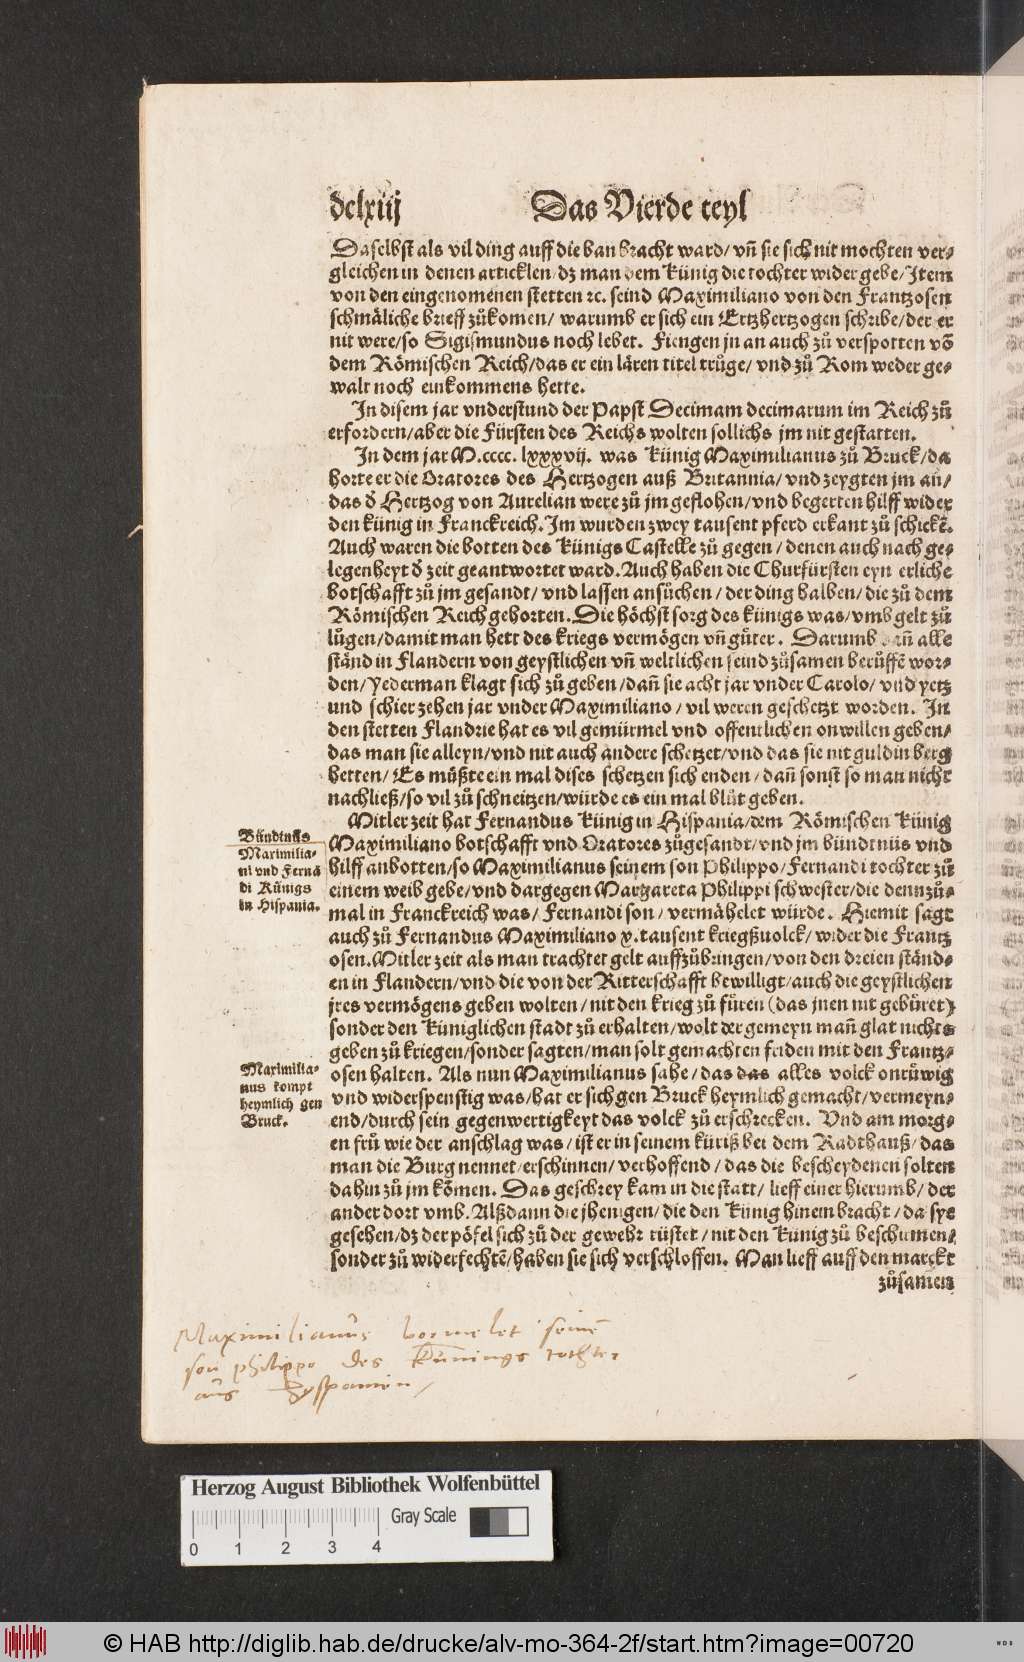 dclxiij
Das Vierde teyl
Daselbst als vil ding auff die ban bracht ward/ vn̄ sie sich nit mochten ver⸗
gleichen in denen articklen/dz man dem Künig die tochter wider gebe/Item
von den eingenomenen stetten ꝛc. seind Maximiliano von den Frantzosen
schmäliche brieff zůkomen/ warumb er sich ein Ertzhertzogen schribe/der er
nit were/so Sigismundus noch lebet. Fiengen jn an auch zů verspotten võ
dem Römischen Reich/das er ein lären titel trůge/ vnd zů Rom weder ge⸗
walt noch einkommens hette.
In disem jar vnderstund der Papst Decimam decimarum im Reich zů
erfordern/aber die Fürsten des Reichs wolten sollichs jm nit gestatten.
In dem jar M.cccc. lxxxvij. was Künig Maximilianus zů Bruck/da
horte er die Oratores des Hertzogen auß Britannia/ vnd zeygten jm an/
das d̕ Hertzog von Aurelian were zů jm geflohen/vnd begerten hilff wider
den künig in Franckreich. Im wurden zwey tausent pferd erkant zů schickẽ.
Auch waren die botten des Künigs Castelle zů gegen/ denen auch nach ge⸗
legenheyt d̕ zeit geantwortet ward. Auch haben die Churfürsten eyn erliche
botschafft zů jm gesandt/ vnd lassen ansůchen/ der ding halben/ die zů dem
Römischen Reich gehorten. Die höchst sorg des künigs was/vmb gelt zů
lůgen/damit man hett des kriegs vermögen vn̄ gůter. Darumb dan̄ alle
ständ in Flandern von geystlichen vn̄ weltlichen seind zůsamen berůffẽ wor⸗
den/Yederman klagt sich zů geben/dan̄ sie acht jar vnder Carolo/ vnd yetz
und schier zehen jar vnder Maximiliano/ vil weren geschetzt worden. In
den stetten Flandrie hat es vil gemürmel vnd offentlichen onwillen geben/
das man sie alleyn/vnd nit auch andere schetzet/vnd das sie nit guldin berg
hetten/ Es müßte ein mal dises schetzen sich enden/ dan̄ sonst so man nicht
nachließ/so vil zů schneitzen/würde es ein mal blůt geben.
Mitler zeit hat Fernandus Künig in Hispania/dem Römischen Künig
Maximiliano botschafft vnd Oratores zůgesandt/vnd jm bündtnüs vnd
hilff anbotten/so Maximilianus seinem son Philippo/Fernandi tochter zů
einem weib gebe/vnd dargegen Margareta Philippi schwester/die dennzů⸗
mal in Franckreich was/ Fernandi son/ vermähelet würde. Hiemit sagt
auch zů Fernandus Maximiliano x. tausent kriegßuolck/ wider die Frantz
osen. Mitler zeit als man trachtet gelt auffzůbringen/von den dreien ständ⸗
en in Flandern/vnd die von der Ritterschafft bewilligt/auch die geystlichen
jres vermögens geben wolten/nit den krieg zů fůren (das jnen nit gebüret)
sonder den Küniglichen stadt zů erhalten/wolt der gemeyn man̄ glat nichts
geben zů kriegen/sonder sagten/man solt gemachten friden mit den Frantz⸗
osen halten. Als nun Maximilianus sahe/das das alles volck onrüwig
vnd widerspenstig was/hat er sich gen Bruck heymlich gemacht/vermeyn⸗
end/durch sein gegenwertigkeyt das volck zů erschrecken. Vnd am morg⸗
en frů wie der anschlag was/ ist er in seinem küriß bei dem Radthauß/das
man die Burg nennet/erschinnen/verhoffend/das die bescheydenen solten
dahin zů jm kõmen. Das geschrey kam in die statt/ lieff einer hierumb/ der
ander dort vmb. Alßdann die jhenigen/die den Künig hinein bracht/da sye
gesehen/dz der pöfel sich zů der gewehr rüstet/nit den Künig zů beschirmen/
sonder zů widerfechtẽ/haben sie sich verschlossen. Man lieff auff den marckt
zůsamen
Bündtnüs
Maximilia⸗
ni vnd Fernā
di Künigs
in Hispania.
Maximilia⸗
nus kompt
heymlich gen
Bruck.
Maximilianus vormelet seinē
son philippo des Künings tochter
aus Hyspanien/
Herzog August Bibliothek Wolfenbüttel
Gray Scale
0 1 2 3 4
© HAB http://diglib.hab.de/drucke/alv-mo-364-2f/start.htm?image=00720